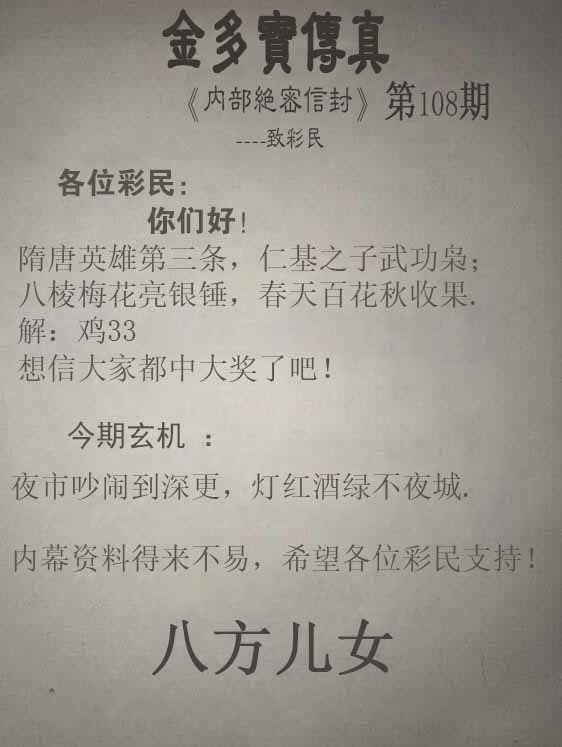 金多寶傳真
《内部絶密信封》第108期
----致彩民
各位彩民:
你们好!
隋唐英雄第三条，仁基之子武功枭;
八棱梅花亮银锤，春天百花秋收果.
解：鸡33
想信大家都中大奖了吧!
今期玄机 ：
夜市吵闹到深更，灯红酒绿不夜城.
内幕资料得来不易，希望各位彩民支持!
八方儿女